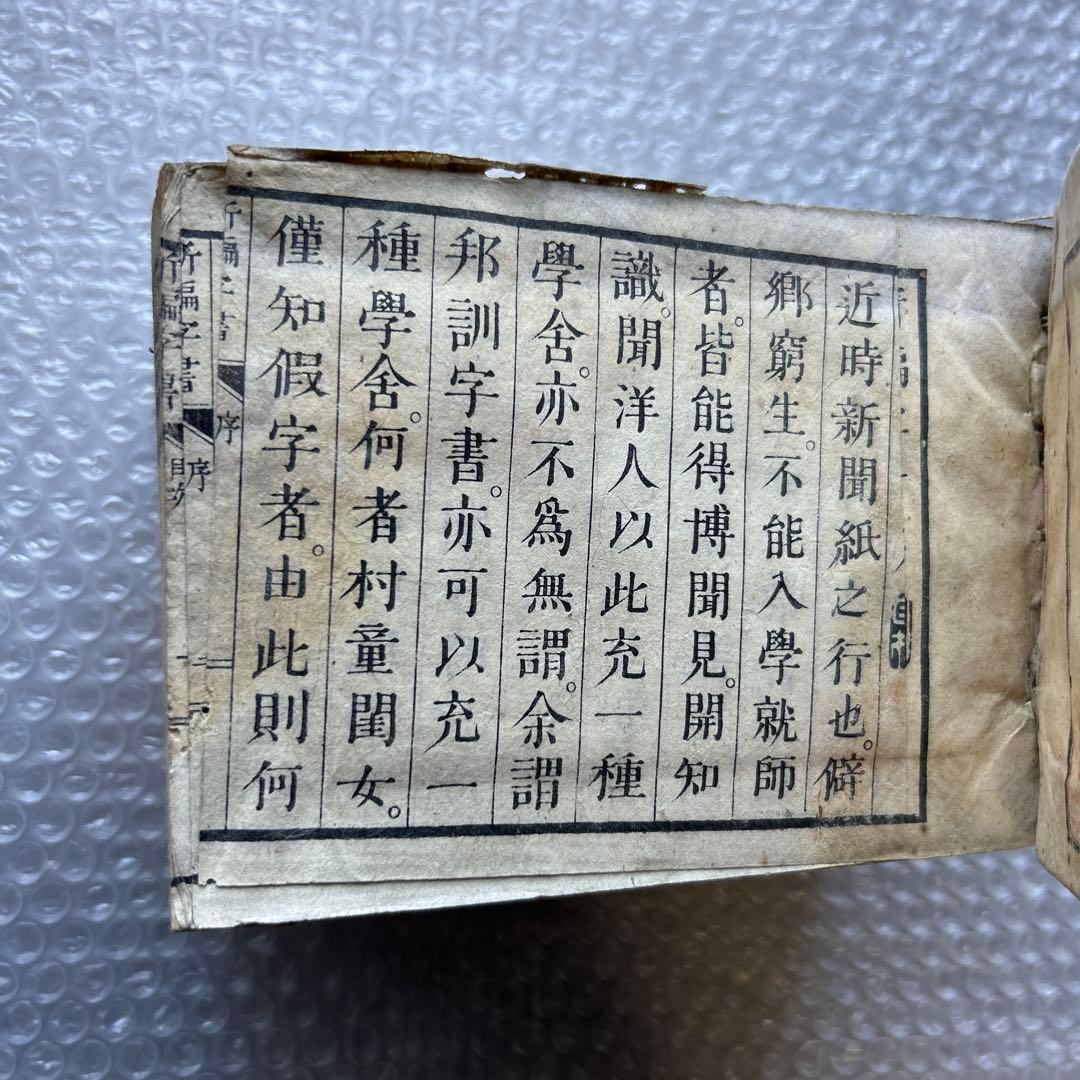 近時新聞紙之行也。僻
鄉窮生。不能入學就師
者。皆能得博聞見。開知
識。聞洋人以此充一種
學舍。亦不為無謂。余謂
邦訓字書。亦可以充一
種學舍。何者村童閨女。
僅知假字者。由此則何
新編字書
序
新編字書
序
目次